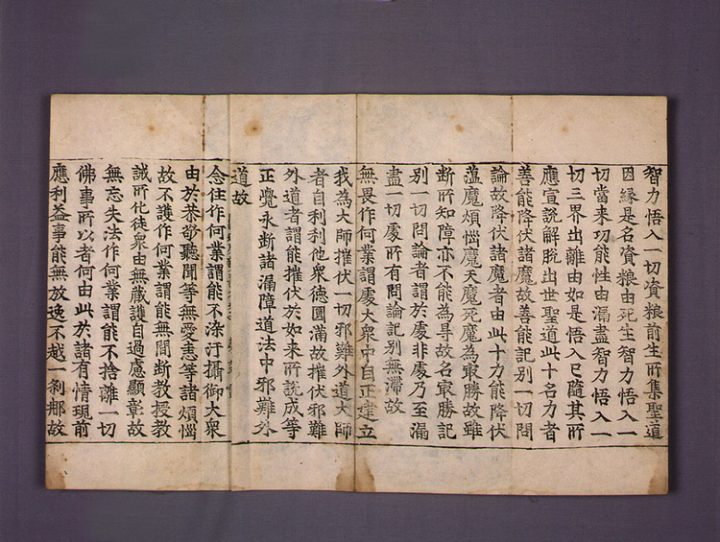 智力悟入一切資粮前生所集聖道
因緣是名資粮由死生智力悟入一
切當来功能性由漏盡智力悟入一
切三界出離由如是悟入已隨其所
應宣說解脫出世聖道此十名力者
善能降伏諸魔故善能記別一切問
論故降伏諸魔者由此十力能降伏
蘊魔煩惱魔天魔死魔為㝡勝故雖
斷所知障亦不能為㝵故名㝡勝記
別一切問論者謂於處非處乃至漏
盡一切處所有問論記別無滯故
無畏作何業謂處大衆中自正建立
我為大師摧伏一切邪難外道大師
者自利利他衆德圓滿故摧伏邪難
外道者謂能摧伏於如来所說成等
正覺永斷諸漏障道法中邪難外
道故
念住作何業謂能不染汙攝御大衆
由於恭敬聽聞等無愛恚等諸煩惱
故不護作何業謂能無間斷教授教
誡所化徒衆由無藏護自過慮顯彰故
無忘失法作何業謂能不捨離一切
佛事所以者何由此於諸有情現前
應利益事能無放逸不越一剎那故